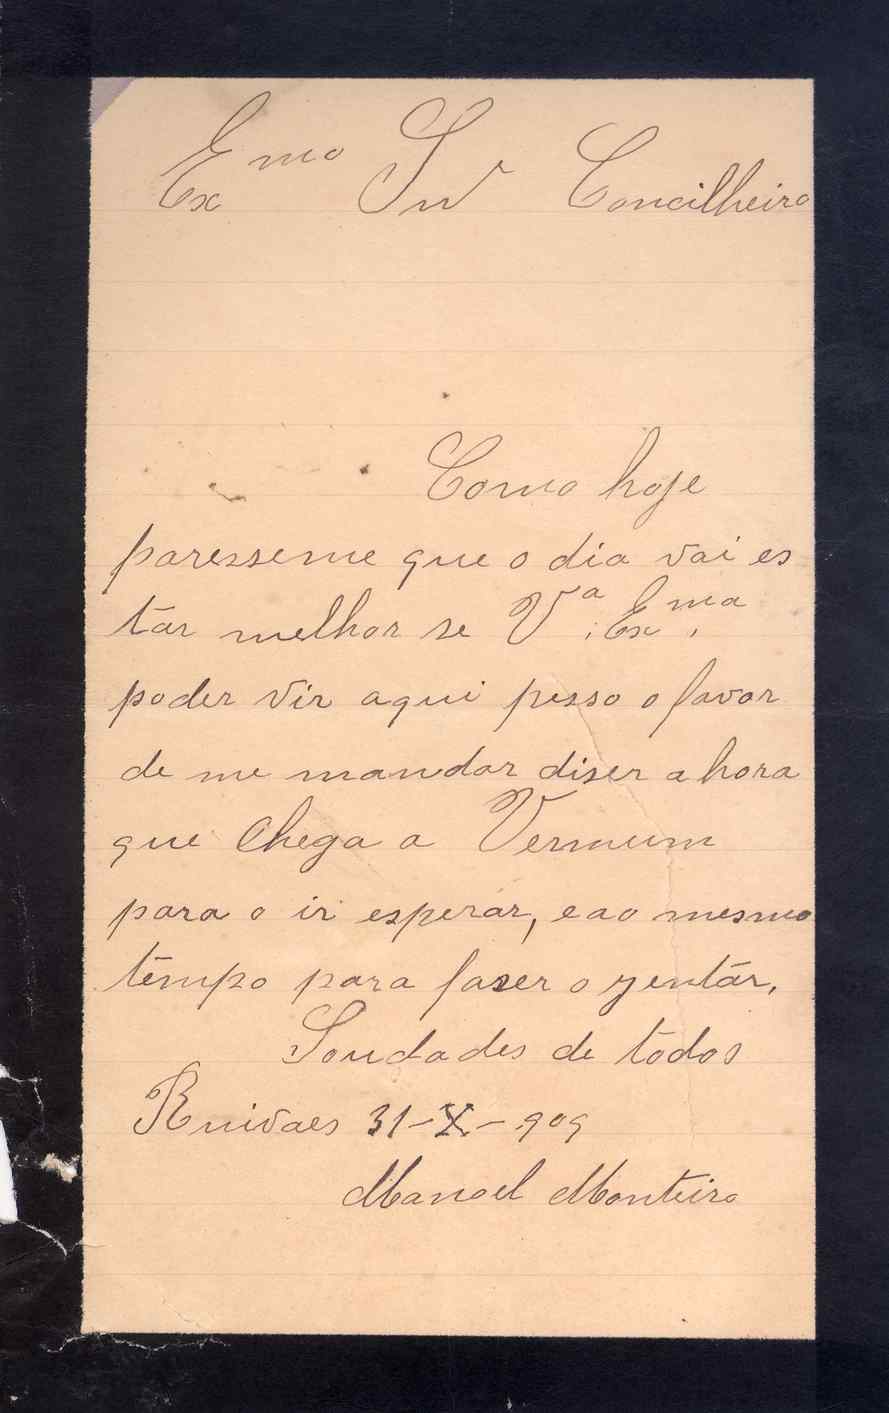 Exmo Snr Concilheiro
Como hoje
paresseme que o dia vai es
tár melhor se Va. Exma.
poder vir aqui pesso o favor
de me mandar diser a hora
que Chega a Vermum
para o ir esperár, e ao mesmo
témpo para faser o yentár.
Soudades de tòdos
Ruivaes 31-X-909
Manoel Monteiro